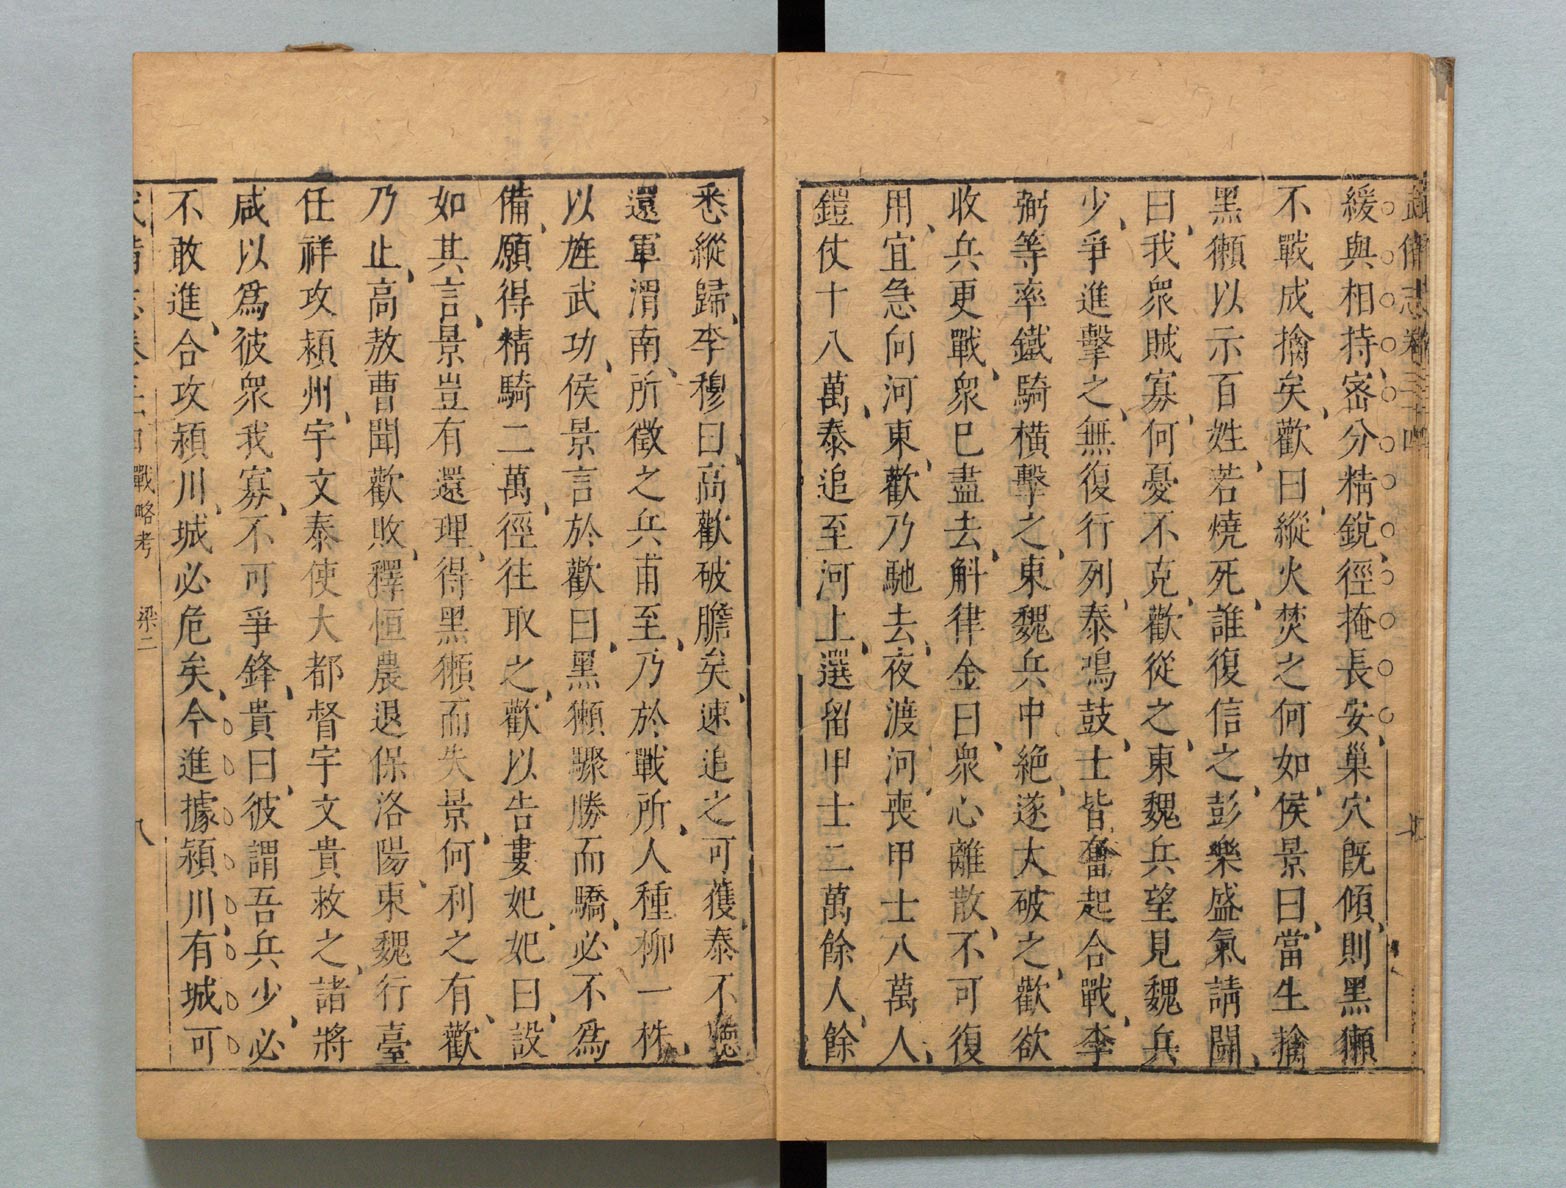 武備志卷三十四
緩與相持、密分精銳、徑掩長安、巢穴旣傾、則黑獺
不戰成擒矣、歡曰、縱火焚之何如、侯景曰、當生擒
黑獺以示百姓、若燒死、誰復信之、彭樂盛氣請鬪、
曰、我眾賊寡、何憂不克、歡從之、東魏兵望見魏兵
少、爭進擊之、無復行列、泰鳴鼓、士皆奮起合戰、李
弼等率鐵騎橫擊之、東魏兵中絕、遂大破之、歡欲
收兵更戰、眾已盡去、斛律金曰、眾心離散、不可復
用、宜急向河東、歡乃馳去、夜渡河、喪甲士八萬人、
鎧仗十八萬、泰追至河上、選留甲士二萬餘人、餘
悉縱歸、李穆曰、高歡破膽矣、速追之可獲、泰不聽
還軍渭南、所徵之兵甫至、乃於戰所、人種柳一株、
以旌武功、侯景言於歡曰、黑獺驟勝而驕、必不爲
備、願得精騎二萬、徑往取之、歡以告婁妃、妃曰、設
如其言、景豈有還理、得黑獺而失景、何利之有、歡
乃止、高敖曹聞歡敗、釋恒農退保洛陽、東魏行臺
任祥攻潁州、宇文泰使大都督宇文貴救之、諸將
咸以爲彼眾我寡、不可爭鋒、貴曰、彼謂吾兵少、必
不敢進、合攻潁川、城必危矣、今進據潁川、有城可
戰略考 梁二
八